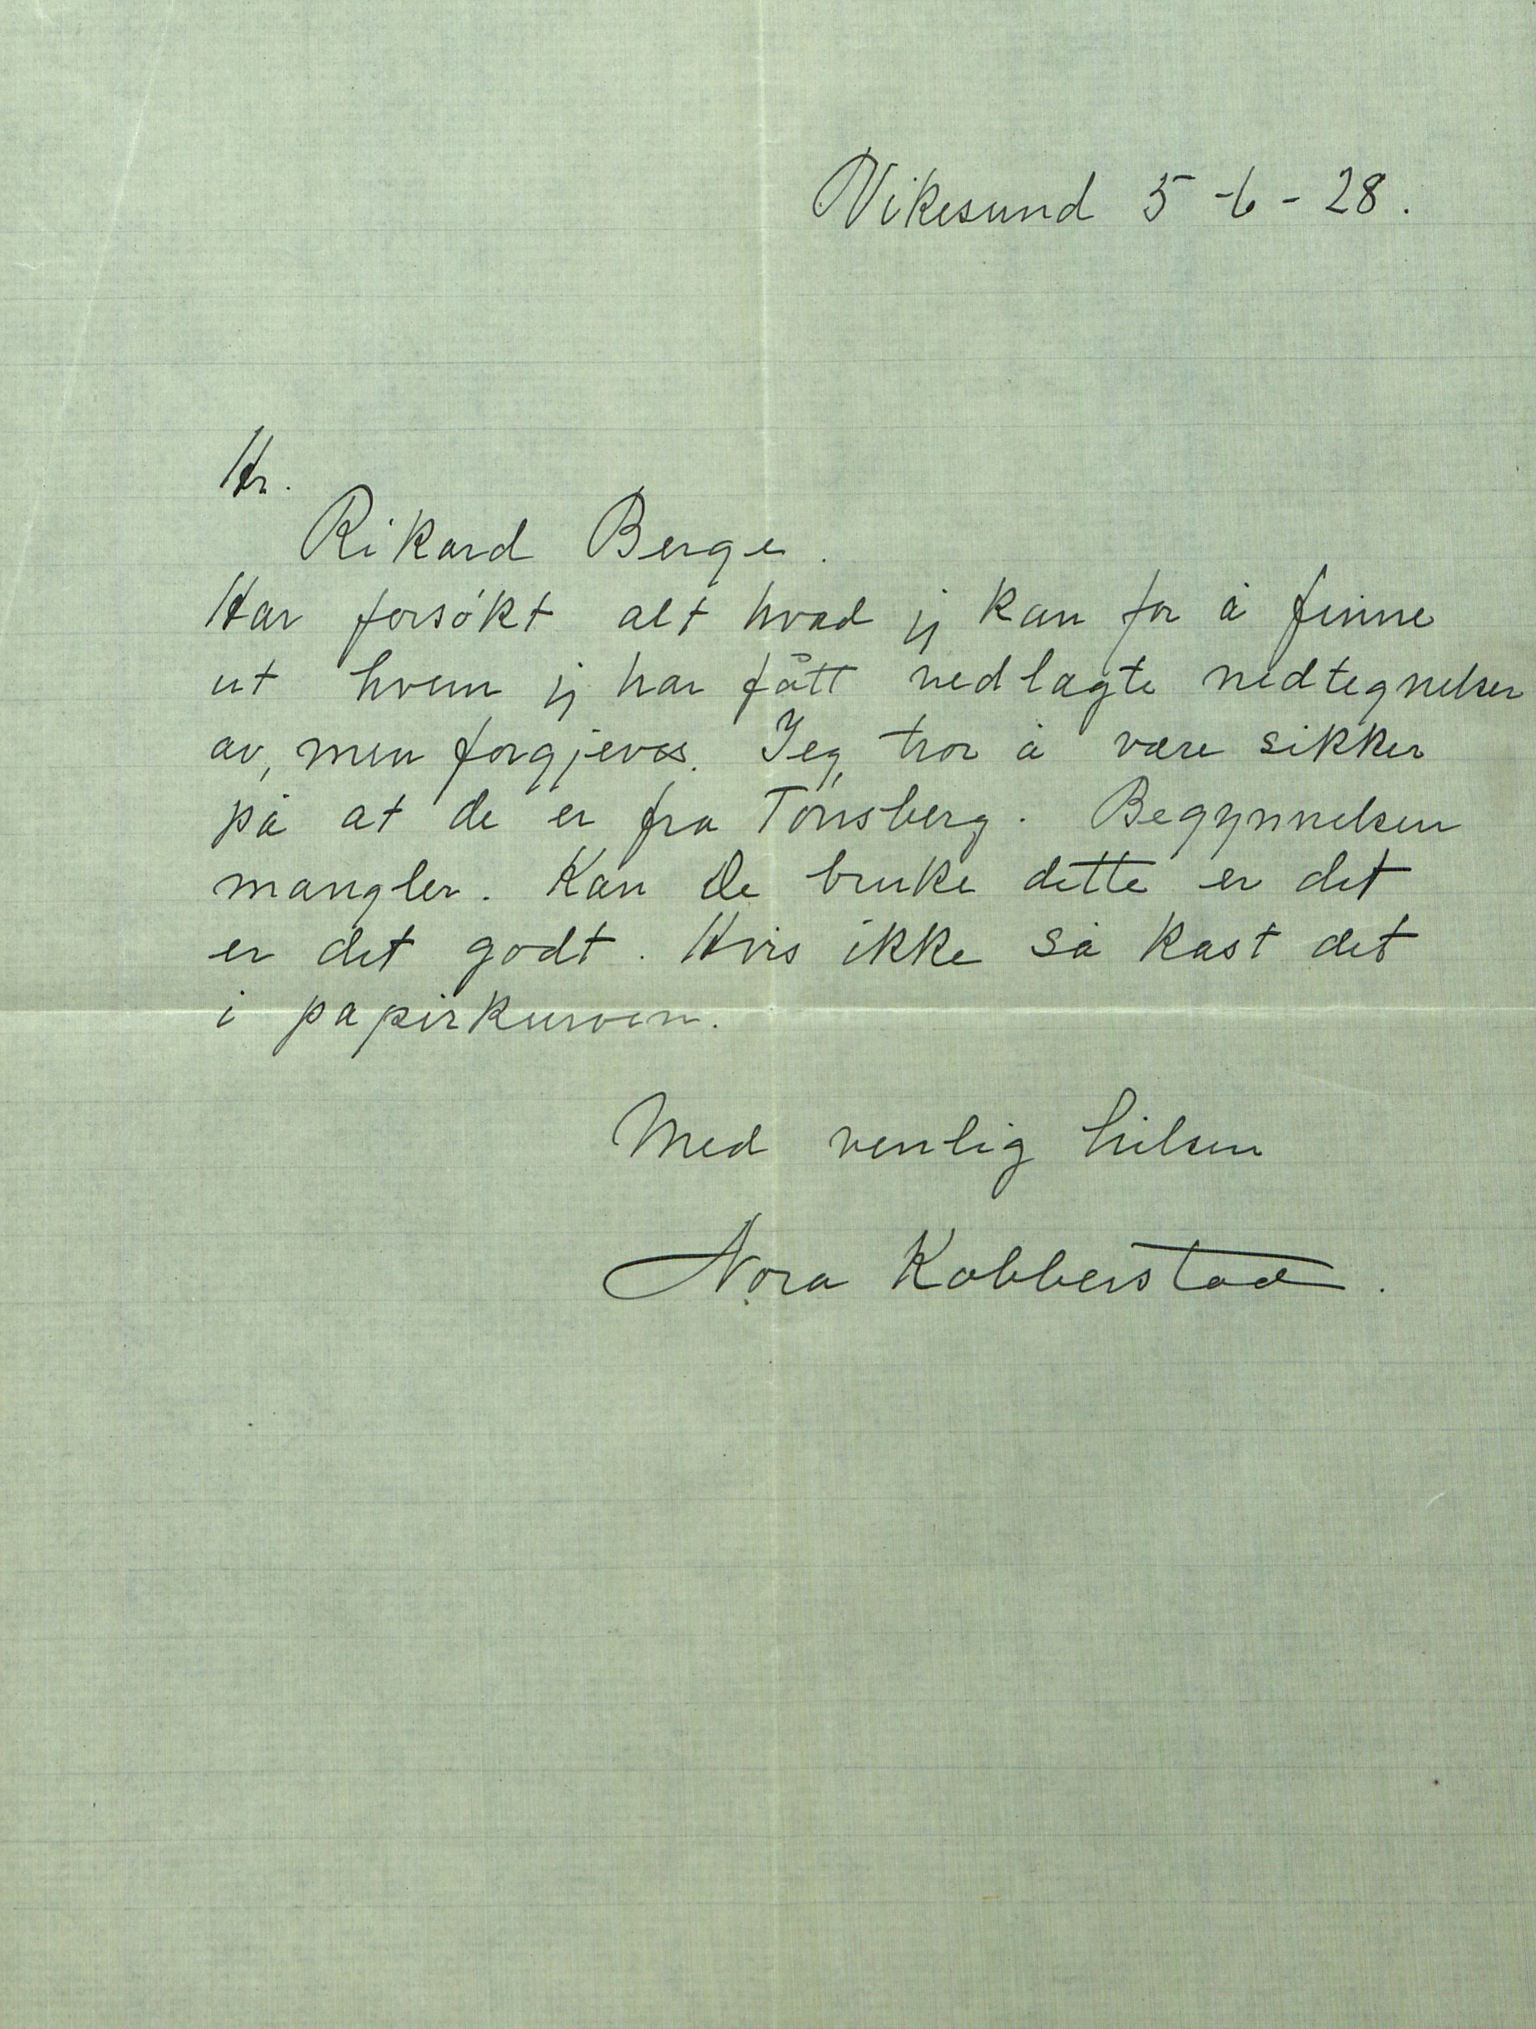 Vikesund 5-6-28.
Hr.
Rikard Berge.
Har forsøkt alt hvad jg kan for å finne
ut hvem jg har fått vedlagte nedtegnelser
av, men forgjeves. Jeg tror å være sikker
på at de er fra Tønsberg. Begynnelsen
mangler. Kan De bruke dette er det
er det godt. Hvis ikke så kast det
i papirkurven.
Med venlig hilsen
Nora Kobberstad.